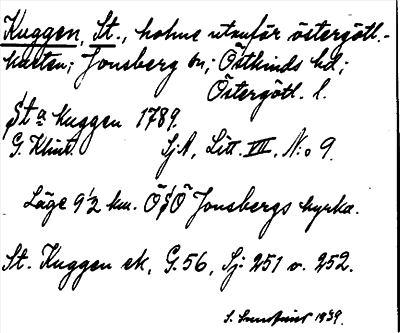 Kuggen, St., holme utanför östergötl.-
kusten; Jonsberg sn; Östkinds hd;
Östergötl. l.
Sta Kuggen 1789.
G. Klint. SjA, Litt. VII, No 9.
Läge 9 1/2 km. Ö S Ö Jonsbergs kyrka.
St. Kuggen ek, G. 56, Sj. 251 o. 252.
1939.